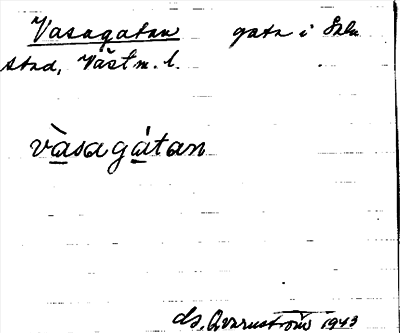 Vasagatan gata i Sala
stad, Västm. l.
vàsagátan
ds, Qvarnström 1943